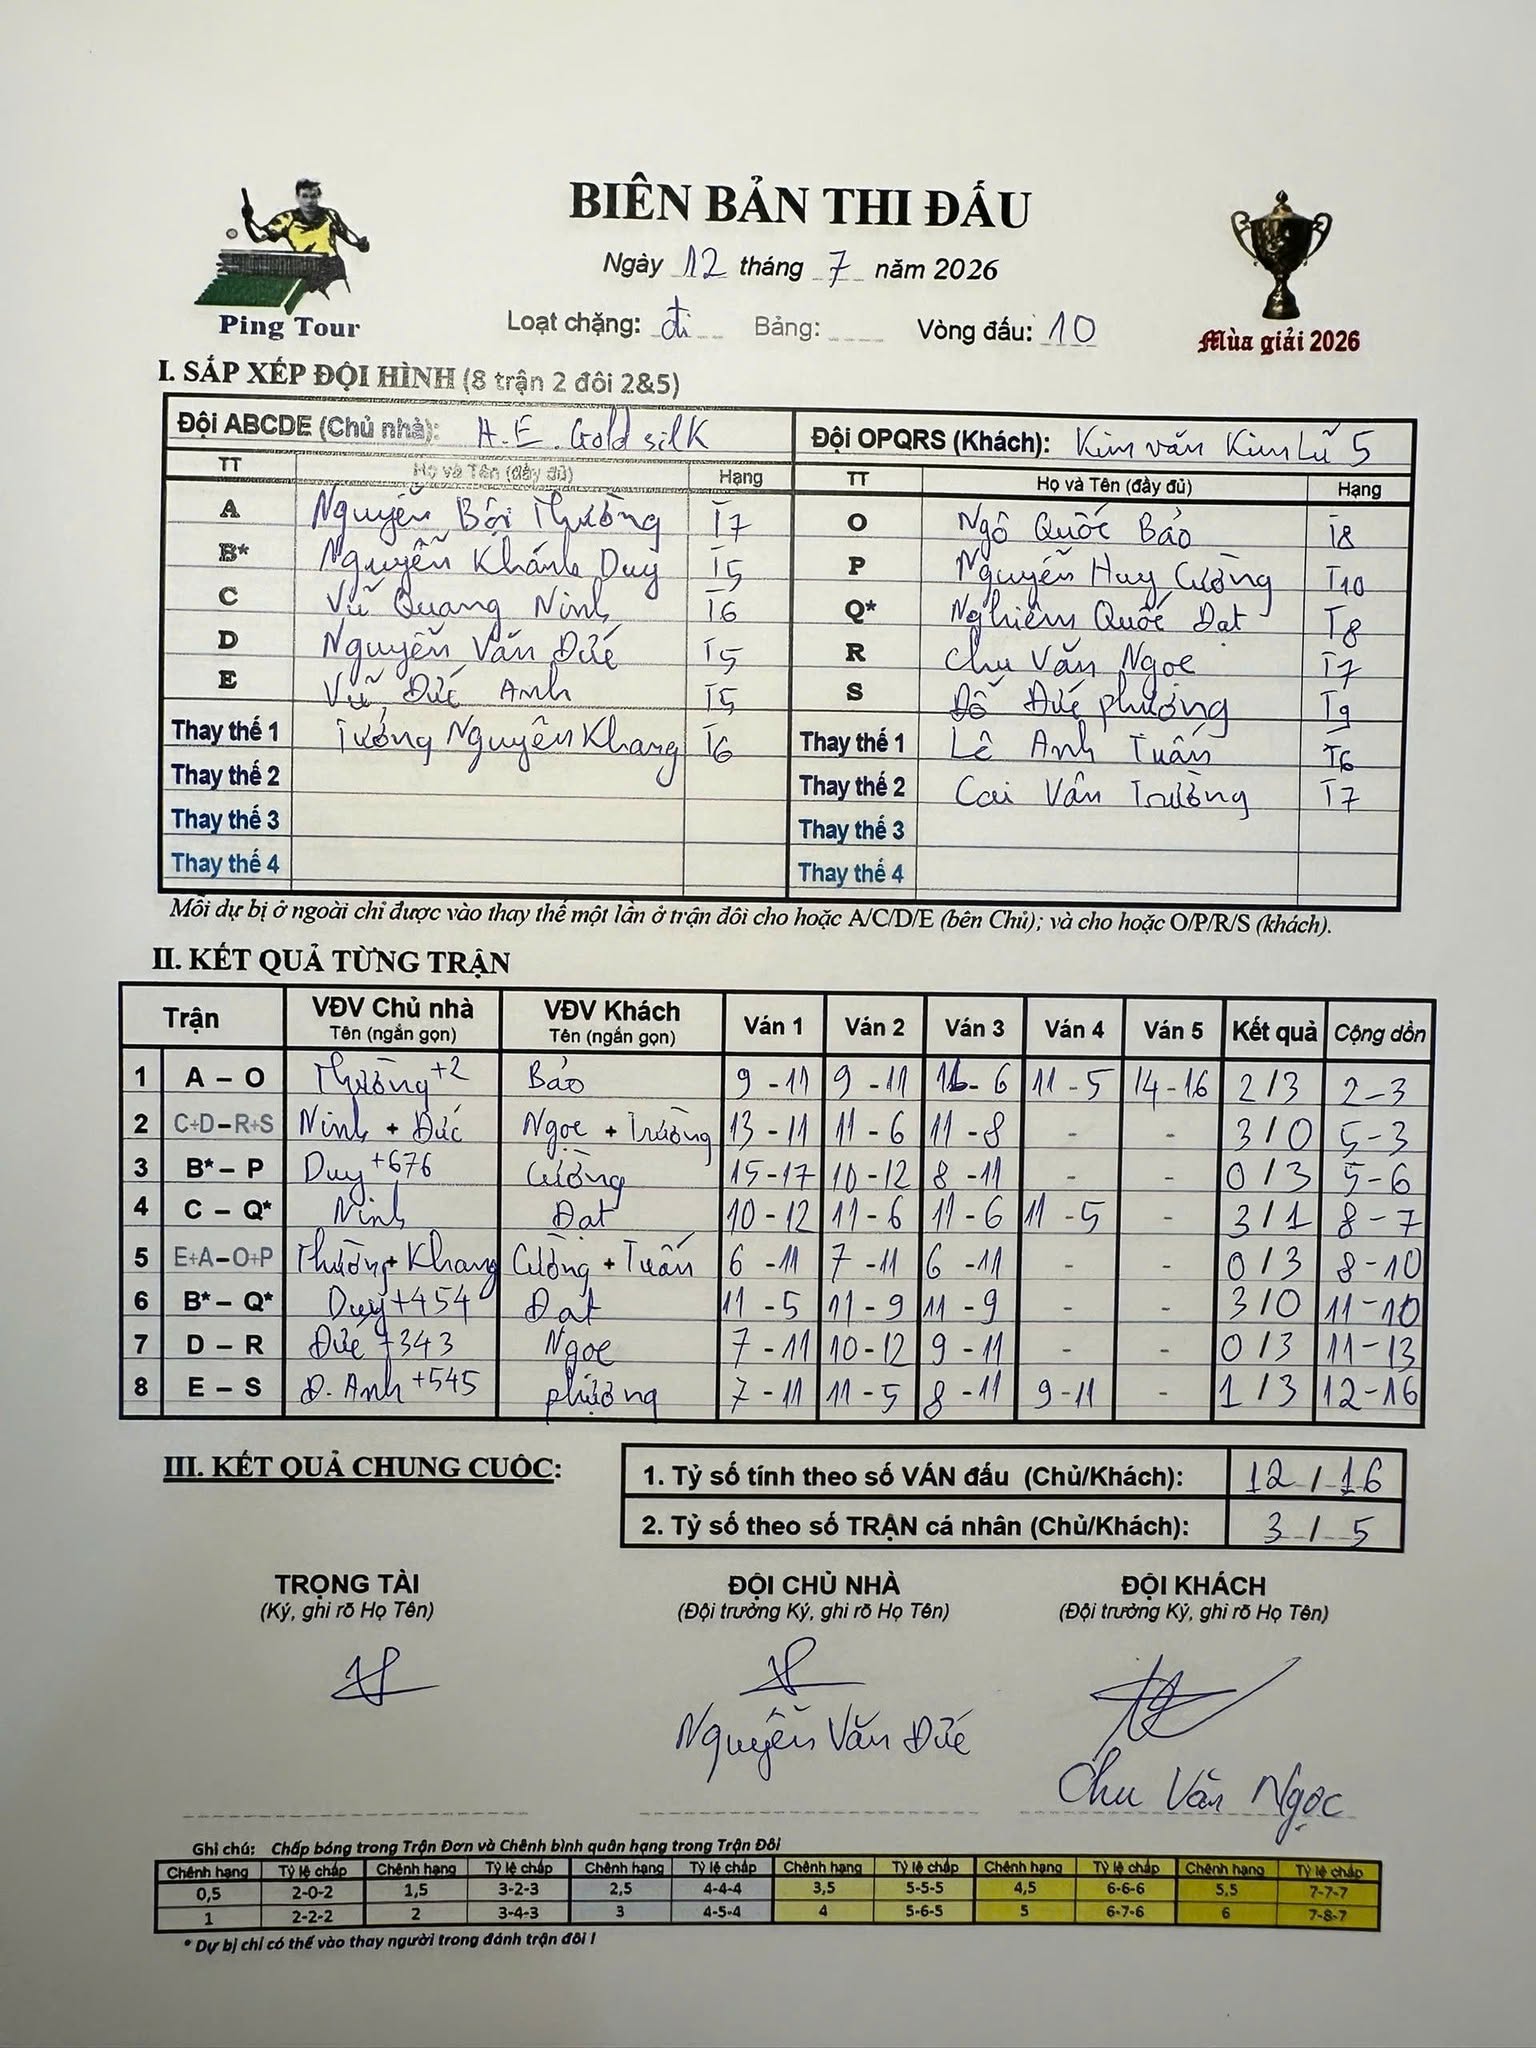 BIÊN BẢN THI ĐẤU
Ngày 12 tháng 7 năm 2026
Ping Tour
Loạt chặng: đi Bảng: Vòng đấu: 10
Mùa giải 2026
I. SẮP XẾP ĐỘI HÌNH (8 trận 2 đôi 2&5)
Đội ABCDE (Chủ nhà): H.E. Gold silk Đội OPQRS (Khách): Kim văn Kim Lũ 5
TT Họ và Tên (đầy đủ) Hạng TT Họ và Tên (đầy đủ) Hạng
A Nguyễn Bội Thường T7 O Ngô Quốc Bảo T8
B* Nguyễn Khánh Duy T5 P Nguyễn Huy Cường T10
C Vũ Quang Ninh T6 Q* Nghiêm Quốc Đạt T8
D Nguyễn Văn Đức T5 R Chu Văn Ngọc T7
E Vũ Đức Anh T5 S Đỗ Đức phượng T9
Thay thế 1 Tưởng Nguyên Khang T6 Thay thế 1 Lê Anh Tuấn T6
Thay thế 2 Thay thế 2 Cai Văn Trường T7
Thay thế 3 Thay thế 3
Thay thế 4 Thay thế 4
Mỗi dự bị ở ngoài chỉ được vào thay thế một lần ở trận đôi cho hoặc A/C/D/E (bên Chủ); và cho hoặc O/P/R/S (khách).
II. KẾT QUẢ TỪNG TRẬN
Trận VĐV Chủ nhà Tên (ngắn gọn) VĐV Khách Tên (ngắn gọn) Ván 1 Ván 2 Ván 3 Ván 4 Ván 5 Kết quả Cộng dồn
1 A – O Thường +2 Bảo 9 - 11 9 - 11 11 - 6 11 - 5 14 - 16 2 / 3 2 - 3
2 C+D – R+S Ninh + Đức Ngọc + Trường 13 - 11 11 - 6 11 - 8 - - 3 / 0 5 - 3
3 B* – P Duy +676 Cường 15 - 17 10 - 12 8 - 11 - - 0 / 3 5 - 6
4 C – Q* Ninh Đạt 10 - 12 11 - 6 11 - 6 11 - 5 - 3 / 1 8 - 7
5 E+A – O+P Thường + Khang Cường + Tuấn 6 - 11 7 - 11 6 - 11 - - 0 / 3 8 - 10
6 B* – Q* Duy +454 Đạt 11 - 5 11 - 9 11 - 9 - - 3 / 0 11 - 10
7 D – R Đức +343 Ngọc 7 - 11 10 - 12 9 - 11 - - 0 / 3 11 - 13
8 E – S Đ. Anh +545 phượng 7 - 11 11 - 5 8 - 11 9 - 11 - 1 / 3 12 - 16
III. KẾT QUẢ CHUNG CUỘC:
1. Tỷ số tính theo số VÁN đấu (Chủ/Khách): 12 / 16
2. Tỷ số theo số TRẬN cá nhân (Chủ/Khách): 3 / 5
TRỌNG TÀI ĐỘI CHỦ NHÀ ĐỘI KHÁCH
(Ký, ghi rõ Họ Tên) (Đội trưởng Ký, ghi rõ Họ Tên) (Đội trưởng Ký, ghi rõ Họ Tên)
Nguyễn Văn Đức
Chu Văn Ngọc
Ghi chú: Chấp bóng trong Trận Đơn và Chênh bình quân hạng trong Trận Đôi
Chênh hạng Tỷ lệ chấp Chênh hạng Tỷ lệ chấp Chênh hạng Tỷ lệ chấp Chênh hạng Tỷ lệ chấp Chênh hạng Tỷ lệ chấp Chênh hạng Tỷ lệ chấp
0,5 2-0-2 1,5 3-2-3 2,5 4-4-4 3,5 5-5-5 4,5 6-6-6 5,5 7-7-7
1 2-2-2 2 3-4-3 3 4-5-4 4 5-6-5 5 6-7-6 6 7-8-7
* Dự bị chỉ có thể vào thay người trong đánh trận đôi !